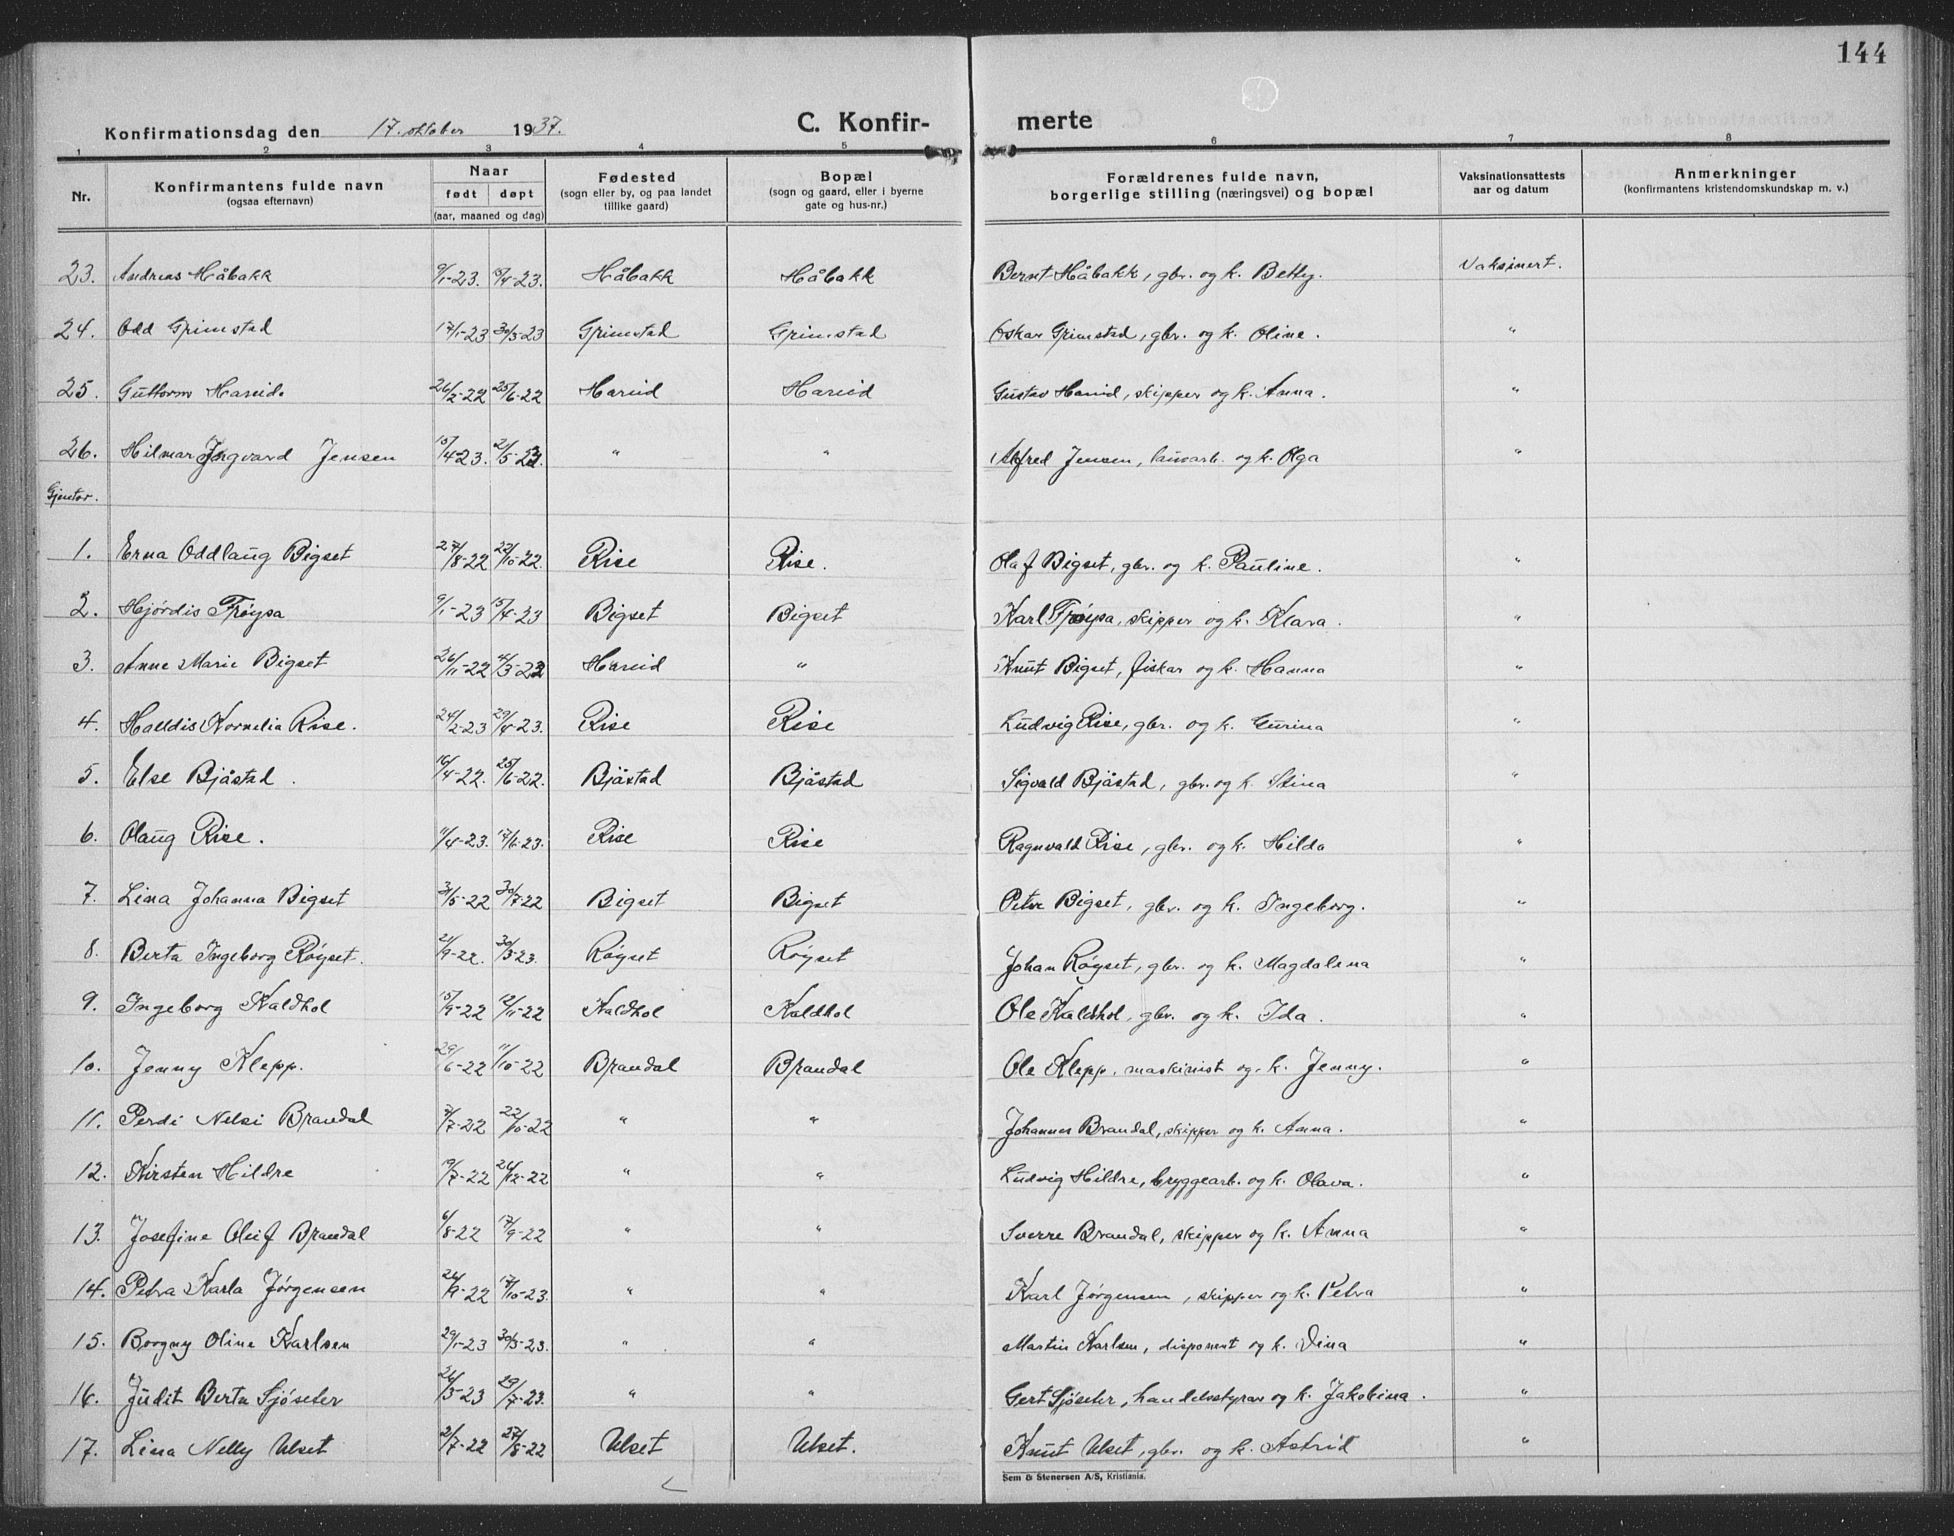 144
Konfirmationsdag den 17. oktober 1937. C. Konfir- merte
1 2 3 4 5 6 7 8
Nr. Konfirmantens fulde navn (ogsaa efternavn) Naar født døpt (aar, maaned og dag) Fødested (sogn eller by, og paa landet tillike gaard) Bopæl (sogn og gaard, eller i byerne gate og hus-nr.) Forældrenes fulde navn, borgerlige stilling (næringsvei) og bopæl Vaksinationsattests aar og datum Anmerkninger (konfirmantens kristendomskundskap m. v.)
23. Andreas Håbakk 9/1-23. 15/4-23. Håbakk Håbakk Bernt Håbakk, gbr. og k. Betty. Vaksinert.
24. Odd Grimstad 17/1-23 30/3-23 Grimstad Grimstad Oskar Grimstad, gbr. og k. Oline. "
25. Guttorm Hareid. 26/2-22 25/6-22 Hareid Hareid Gustav Hareid, skipper og k. Anna. "
26. Hilmar Ingvard Jensen 15/4-23. 21/5-23. " " Alfred Jensen, lausarb. og k. Olga "
Gjentor.
1. Erna Oddlaug Bigset 27/8-22 22/10-22. Rise Rise. Olaf Bigset, gbr. og k. Pauline. "
2. Hjórdis Frøysa 9/1-23 15/4-23 Bigset Bigset Karl Frøysa, skipper og k. Klara. "
3. Anne Marie Bigset 26/11-22 4/3-23 Hareid " Knut Bigset, fiskar og k. Hanna "
4. Halldis Kornelia Rise. 24/2-23 29/4-23. Rise Rise Ludvig Rise, gbr. og k. Gurina "
5. Else Bjåstad. 16/4-22. 25/6-22. Bjåstad Bjåstad Sigvald Bjåstad, gbr. og k. Stina "
6. Olaug Rise. 11/4-23. 17/6-23. Rise Rise Ragnvald Rise, gbr. og k. Hilda "
7. Lina Johanna Bigset 31/5-22 30/7-22 Bigset Bigset Peter Bigset, gbr. og k. Ingeborg. "
8. Berta Ingeborg Røyset. 21/9-22. 30/3-23. Røyset Røyset Johan Røyset, gbr. og k. Magdalena "
9. Ingeborg Kaldhol 15/9-22 12/11-22 Kaldhol Kaldhol Ole Kaldhol, gbr. og k. Ida. "
10. Jenny Klepp. 29/6-22 11/10-22 Brandal Brandal Ole Klepp, maskinist og k. Jenny. "
11. Perdi Nelsi Brandal 3/7-22 22/10-22 " " Johannes Brandal, skipper og k. Anna. "
12. Kirsten Hildre 19/7-22 26/12-22 " " Ludvig Hildre, bryggearb. og k. Olava. "
13. Josefine Oluf Brandal 6/8-22 17/9-22 " " Sverre Brandal, skipper og k. Anna "
14. Petra Karla Jørgensen 26/9-22 17/10-23. " " Karl Jørgensen, skipper og k. Petra "
15. Borgny Oline Karlsen 29/1-23 30/3-23. " " Martin Karlsen, disponent og k. Dina "
16. Judit Berta Sjóseter 26/3-23 29/7-23. " " Gert Sjøseter, handelsstyrar og k. Jakobina. "
17. Lina Nelly Ulset 2/7-22 27/8-22 Ulset Ulset. Knut Ulset, gbr. og k. Astrid "
Sem & Stenersen A/S, Kristiania.